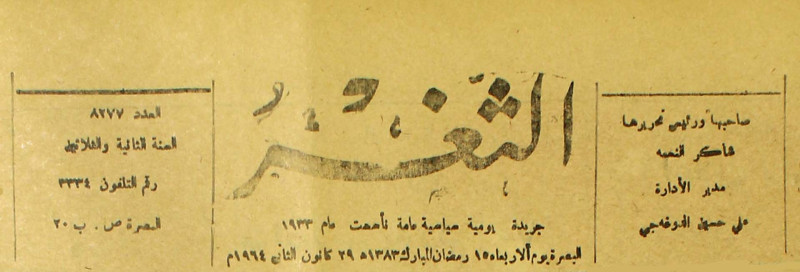 صاحبها ورئيس تحريرها
شاكر النعمه
مدير الأدارة
علي حسين
الثغر
جريدة يومية سياسية عامة تأسست عام ١٩٣٣
البصرة يوم ألاربعاء ١٥ رمضان المبارك ١٣٨٣ه ٢٩ كانون الثاني ١٩٦٤م
العدد ٨٢٧٧
السنة الثانية والثلاثين
رقم التلفون ٣٣٣٤
البصرة ص . ب ٢٠